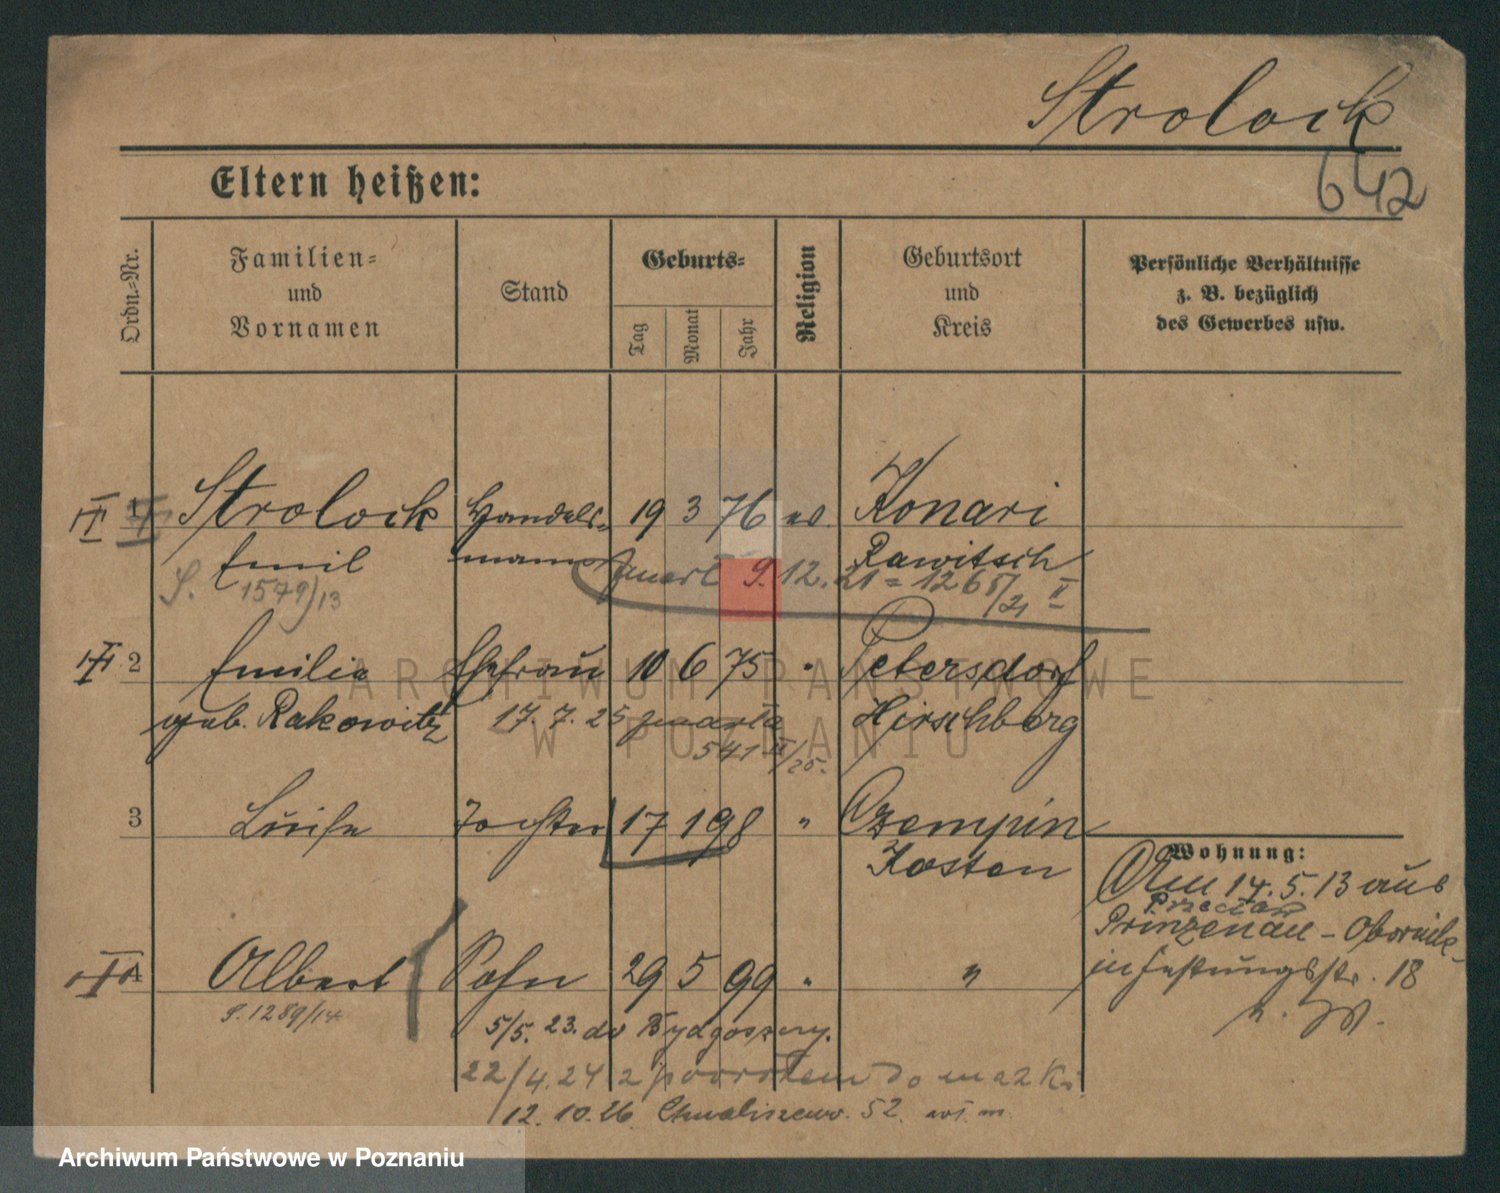 Strolock
642
Eltern heißen:
Ordn.-Nr.
Familien-
und
Vornamen
Stand
Geburts-
Tag
Monat
Jahr
Religion
Geburtsort
und
Kreis
Persönliche Verhältnisse
z. B. bezüglich
des Gewerbes usw.
1 Strolock Handels- 19 3 76 ev. Konari
Emil mann Rawitsch
zmarł 9.12.21 = 1265/21 II
S. 1579/13
2 Emilie Ehefrau 10 6 75 " Petersdorf
geb. Rakowitz Hirschberg
17. 7. 25 zmarła
541 II/25.
3 Luise Tochter 17 1 98 " Czempin
Kosten
Wohnung:
Am 14. 5. 13 aus
Prinzenau - Obornik
in Festungsstr. 18
4 Albert Sohn 29 5 99 " "
S. 1289/14
5/5. 23. do Bydgoszczy.
22/4.24 z powrotem do
12. 10. 26. Chwaliszewo. 52.
ARCHIWUM PAŃSTWOWE
W POZNANIU
Archiwum Państwowe w Poznaniu